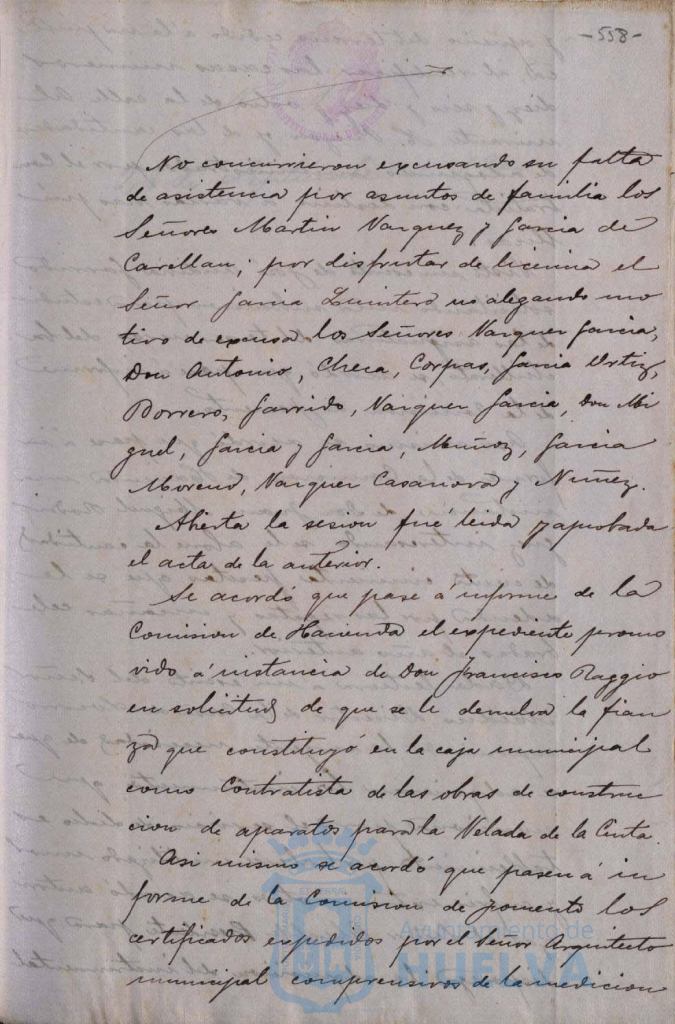 -558-
No concurrieron excusando su falta
de asistencia por asuntos de familia los
Señores Martin Vazquez y Garcia de
Carellan; por disfrutar de licencia el
Señor Garcia Quintero no alegando mo
tivo de excusa los Señores Vazquez Garcia,
Don Antonio, Checa, Corpas, Garcia Ortiz,
Borrero, Garrido, Vazquez Garcia, Don Mi
guel, Garcia y Garcia, Muñoz, Garcia
Moreno, Vazquez Casanova y Nuñez.
Abierta la sesion fué leida y aprobada
el acta de la anterior.
Se acordó que pase á informe de la
Comision de Hacienda el expediente promo
vido á instancia de Don Francisco Raggio
en solicitud de que se le devuelva la fian
za que constituyó en la caja municipal
como Contratista de las obras de construc
cion de aparatos para la Velada de la Cinta.
Asi mismo se acordó que pasen á in
forme de la Comision de fomento los
certificados expedidos por el Señor Arquitecto
municipal comprensivos de la medicion
Ayuntamiento de
HUELVA